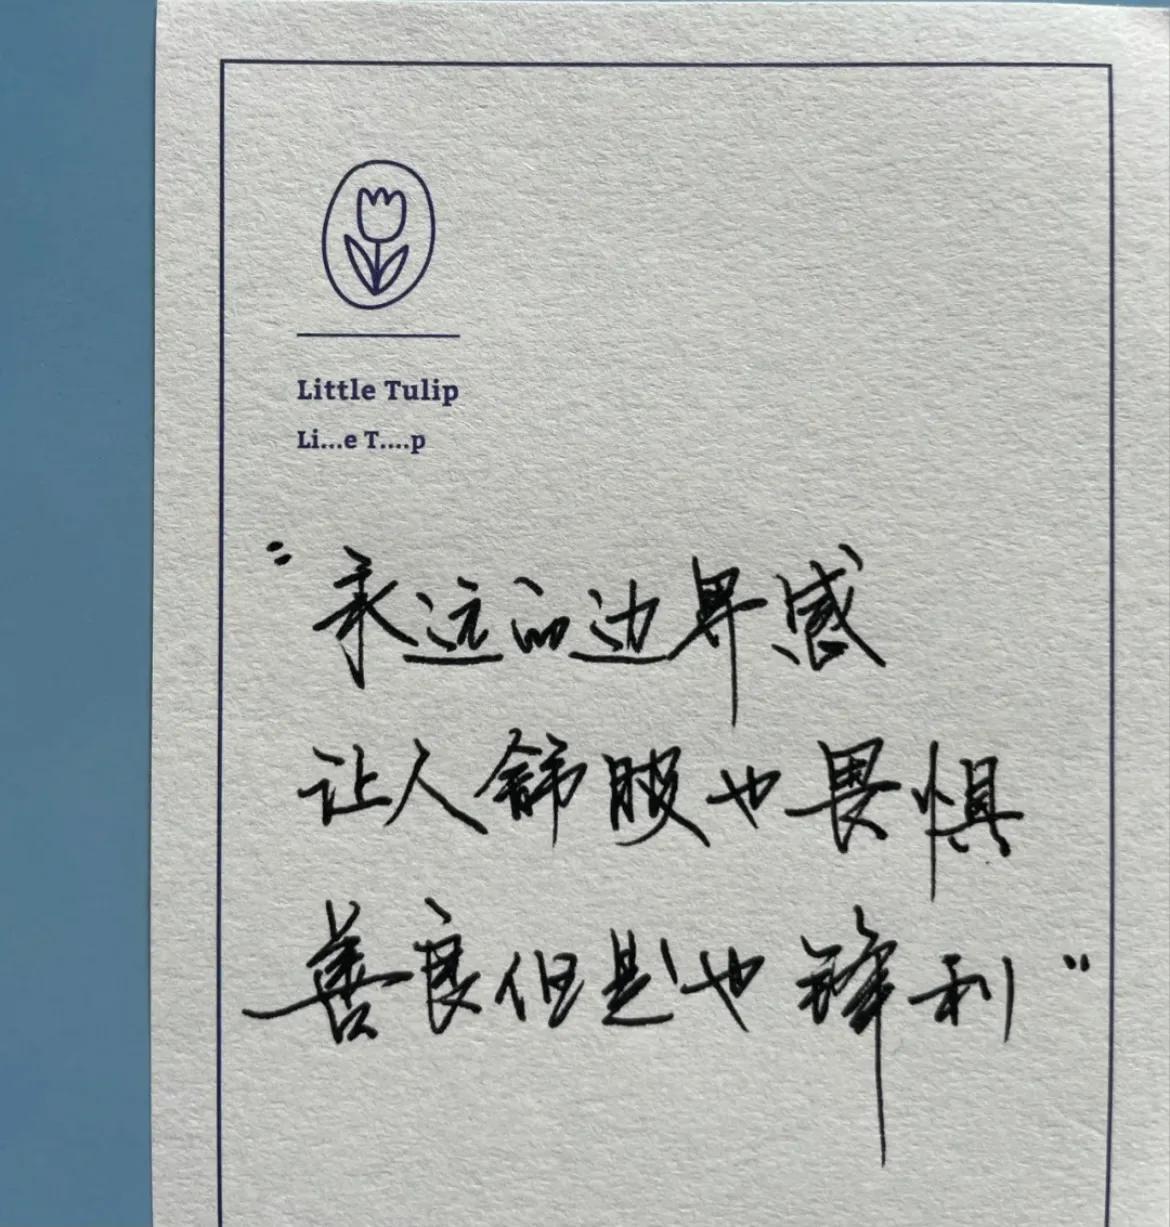 Little Tulip
Li...e T....p
“永远的边界感
让人舒服也畏惧
善良但是也锋利”